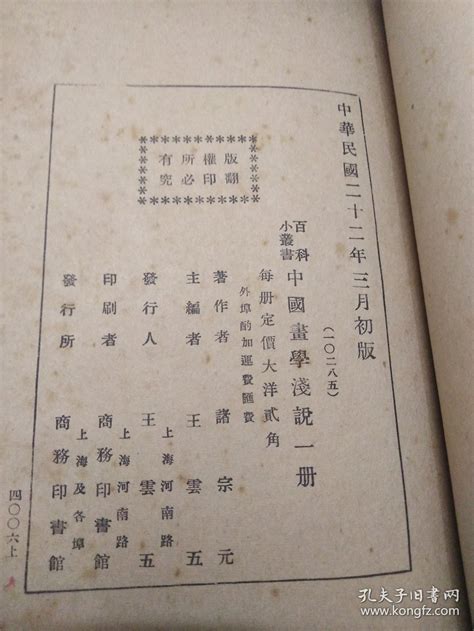 中華民國二十二年三月初版
(一〇二八五)
百科小叢書 中國畫學淺說一册
每册定價大洋貳角
外埠酌加運費匯費
版權所有
翻印必究
著作者 諸宗元
主編者 王雲五
發行人 王雲五
上海河南路
印刷者 商務印書館
上海河南路
發行所 商務印書館
上海及各埠
四〇〇六上
孔夫子旧书网
www.kongfz.com